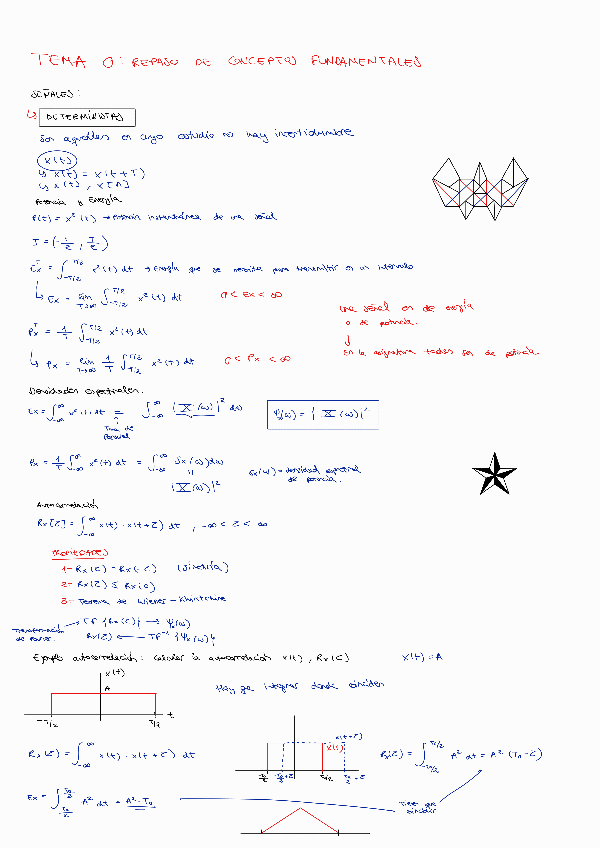 TEMA 0: REPASO DE CONCEPTOS FUNDAMENTALES
SEÑALES:
↳ DETERMINISTAS
Son aquellas en cuyo estudio no hay incertidumbre
x(t)
↳ x(t) = x(t+T)
↳ x(t), x[n]
Potencia y Energía
P(t) = x²(t) → Potencia instantánea de una señal
T = (-1/2, T/2)
Ex^T = ∫_{-T/2}^{T/2} x²(t) dt → Energía que se necesita para transmitir en un intervalo
↳ Ex = lim_{T→∞} ∫_{-T/2}^{T/2} x²(t) dt    0 ≤ Ex < ∞
Una señal es de energía
o de potencia.
↓
En la asignatura todas son de potencia.
Px^T = 1/T ∫_{-T/2}^{T/2} x²(t) dt
↳ Px = lim_{T→∞} 1/T ∫_{-T/2}^{T/2} x²(t) dt    0 ≤ Px < ∞
Densidades espectrales.
Ex = ∫_{-∞}^{∞} x²(t) dt = ∫_{-∞}^{∞} |X(ω)|² dω    Ψx(ω) = |X(ω)|²
↑
Tma de
Parseval
Px = 1/T ∫_{-∞}^{∞} x²(t) dt = ∫_{-∞}^{∞} Sx(ω) dω    Sx(ω) = densidad espectral
de potencia.
||
|X(ω)|²
Autocorrelación
Rx[τ] = ∫_{-∞}^{∞} x(t) · x(t+τ) dt, -∞ ≤ τ ≤ ∞
PROPIEDADES
1- Rx(τ) = Rx(-τ) (Simetría)
2- Rx(τ) ≤ Rx(0)
3- Teorema de Wiener-Khintchine
Transformación
de Fourier.
TF {Rx(τ)} → Ψx(ω)
Rx(τ) ← TF⁻¹ {Ψx(ω)}
Ejemplo autocorrelación: Calcular la autocorrelación x(t), Rx(τ)    x(t) = A
x(t)
A
-T/2    T/2    t
Hay que integrar donde coinciden
x(t+τ)
x(t)
Rx(τ) = ∫_{-∞}^{∞} x(t) · x(t+τ) dt
Rx(τ) = ∫_{-T0/2}^{T0/2} A² dt = A² (T0-τ)
Ex = ∫_{-T0/2}^{T0/2} A² dt = A² · T0
Tienen que
coincidir